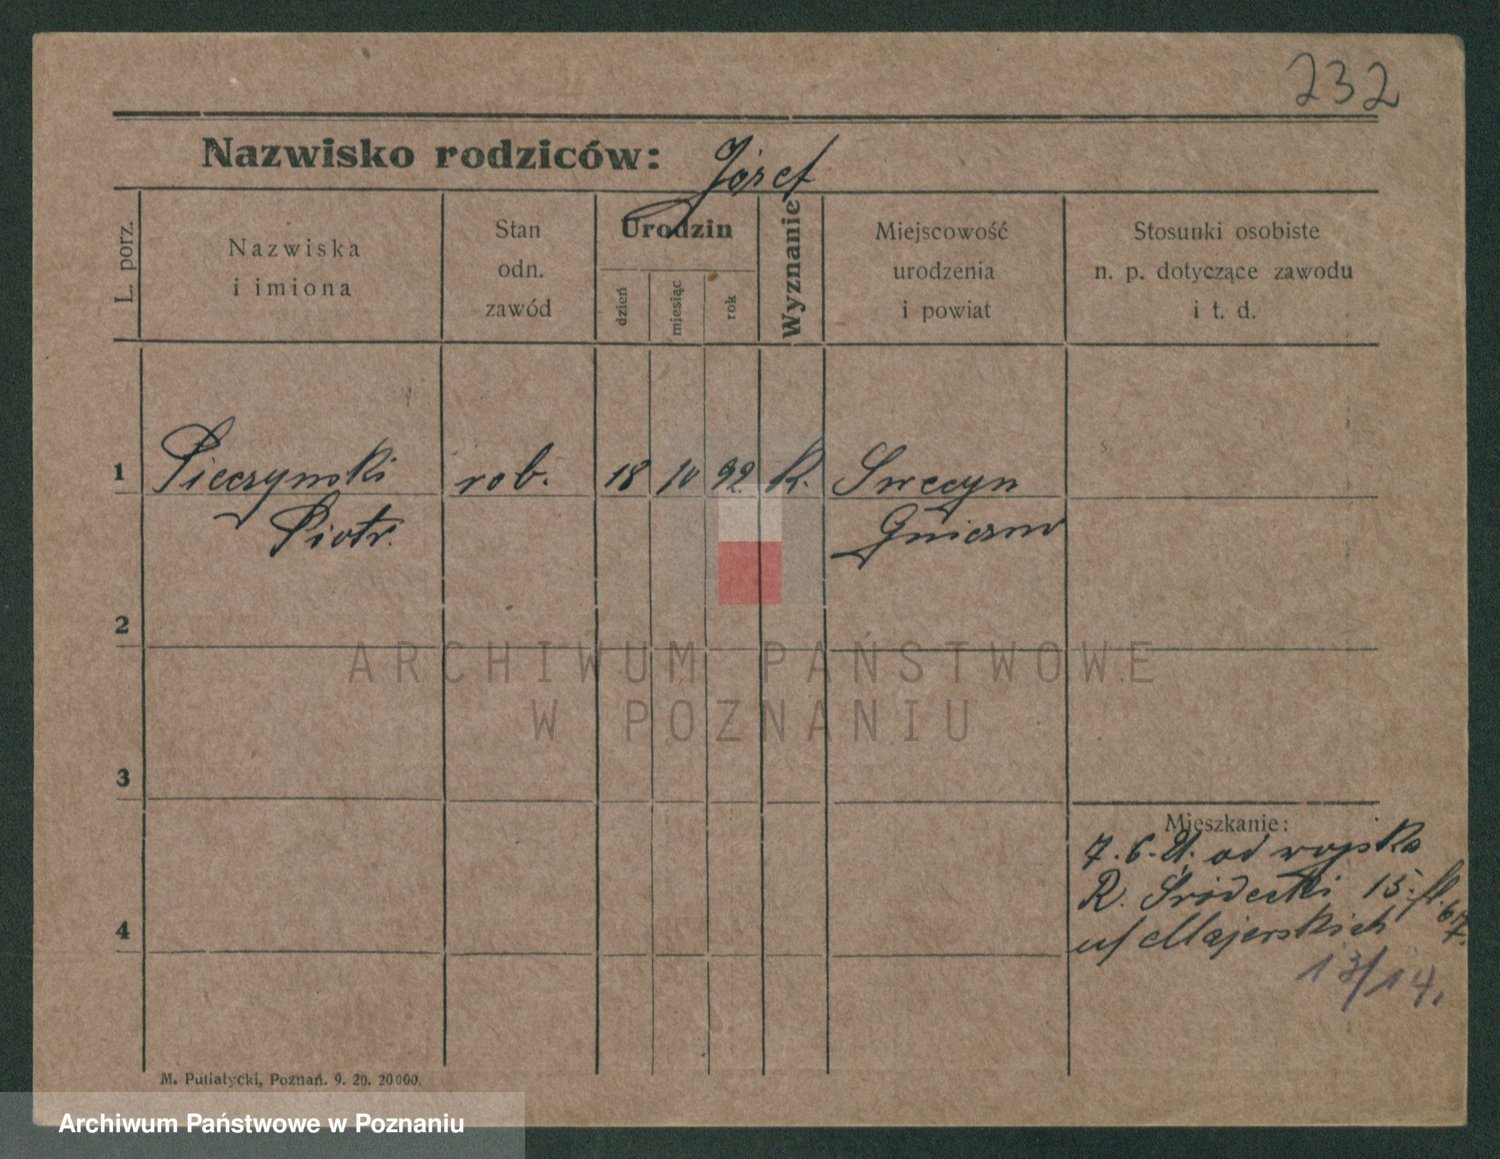 232
Nazwisko rodziców: Józef
L. porz.
Nazwiska
i imiona
Stan
odn.
zawód
Urodzin
dzień
miesiąc
rok
Wyznanie
Miejscowość
urodzenia
i powiat
Stosunki osobiste
n. p. dotyczące zawodu
i t. d.
1 Pieczynski rob. 18 10 92. K.
Piotr. Gniezno
2
3
4
Mieszkanie:
7.6.21. od wojska
R. Śródecki 15.
u/ Majerskich
13/14.
M. Putiatycki, Poznań. 9. 20. 20000.
ARCHIWUM PAŃSTWOWE
W POZNANIU
Archiwum Państwowe w Poznaniu